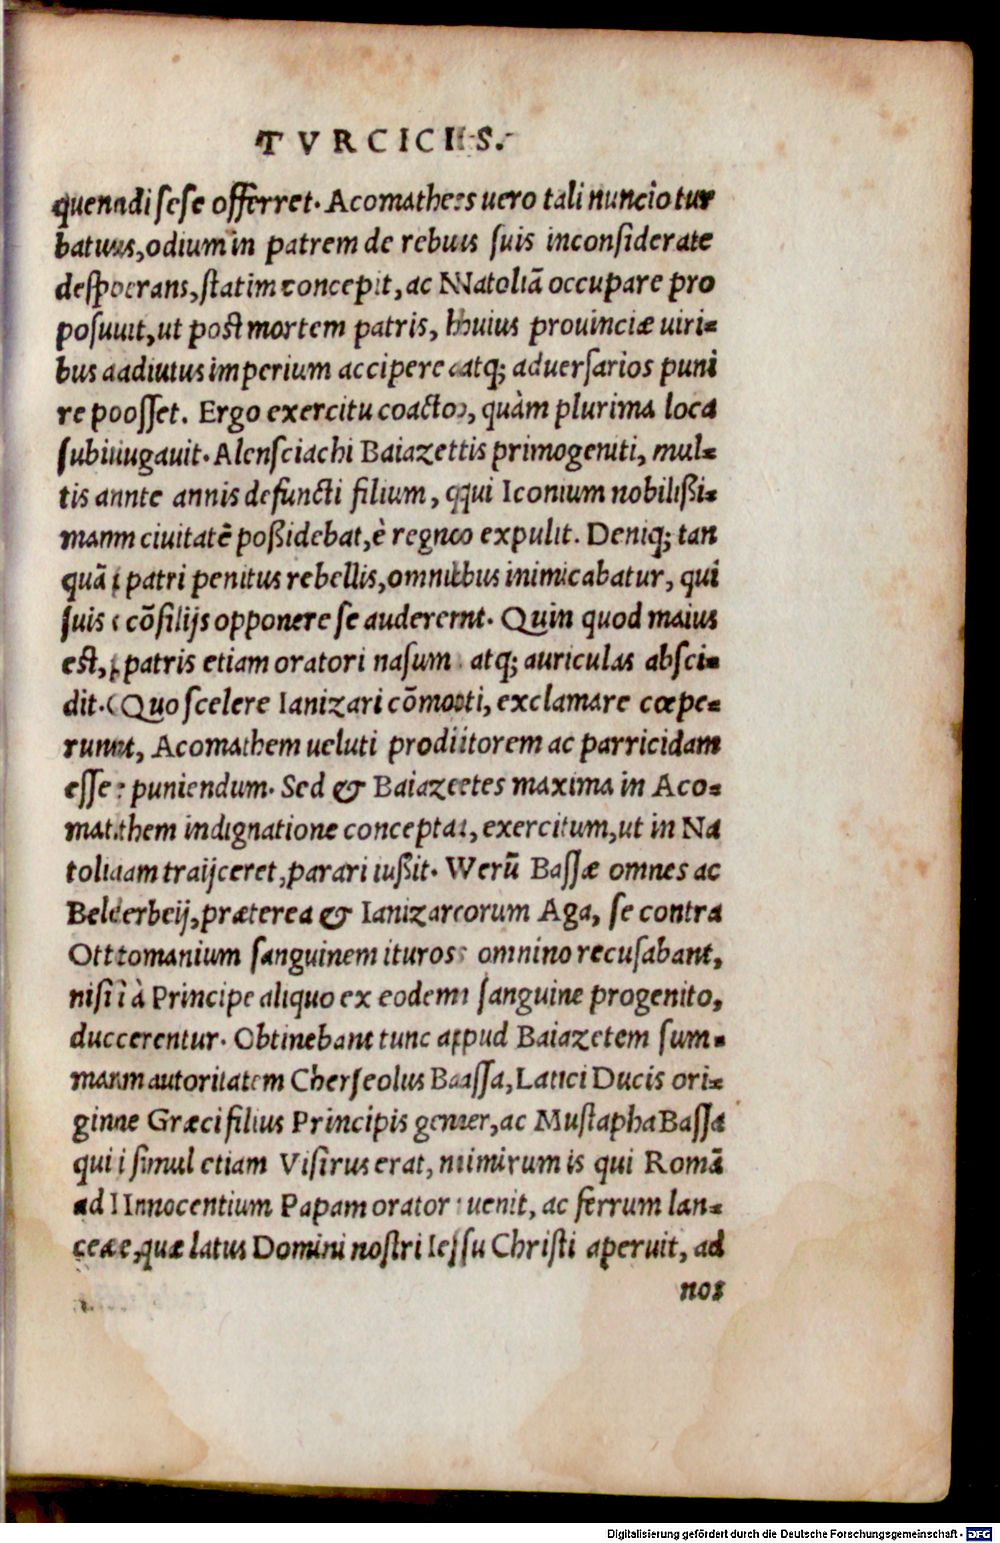 TVRCICIS.
quendi sese offerret. Acomathes uero tali nuncio tur
batus, odium in patrem de rebus suis inconsiderate
desperans, statim concepit, ac Natoliā occupare pro
posuit, ut post mortem patris, huius prouinciæ uiri-
bus adiutus imperium accipere atq; aduersarios puni
re posset. Ergo exercitu coacto, quàm plurima loca
subiugauit. Alensciachi Baiazettis primogeniti, mul-
tis ante annis defuncti filium, qui Iconium nobilißi-
mam ciuitatē poßidebat, è regno expulit. Deniq; tan
quā patri penitus rebellis, omnibus inimicabatur, qui
suis cōsilijs opponere se auderent. Quin quod maius
est, patris etiam oratori nasum atq; auriculas absci-
dit. Quo scelere Ianizari cōmoti, exclamare cœpe-
runt, Acomathem ueluti proditorem ac parricidam
esse puniendum. Sed & Baiazetes maxima in Aco-
mathem indignatione concepta, exercitum, ut in Na
toliam traijceret, parari iußit. Werū Bassæ omnes ac
Belerbeij, præterea & Ianizarorum Aga, se contra
Ottomanium sanguinem ituros omnino recusabant,
nisi à Principe aliquo ex eodem sanguine progenito,
ducerentur. Obtinebant tunc apud Baiazetem sum-
mam autoritatem Cherseolus Bassa, Latici Ducis ori-
gine Græci filius Principis gener, ac Mustapha Bassa
qui simul etiam Visirus erat, nimirum is qui Romā
ad Innocentium Papam orator uenit, ac ferrum lan-
ceæ, quæ latus Domini nostri Iessu Christi aperuit, ad
nos
Digitalisierung gefördert durch die Deutsche Forschungsgemeinschaft - DFG